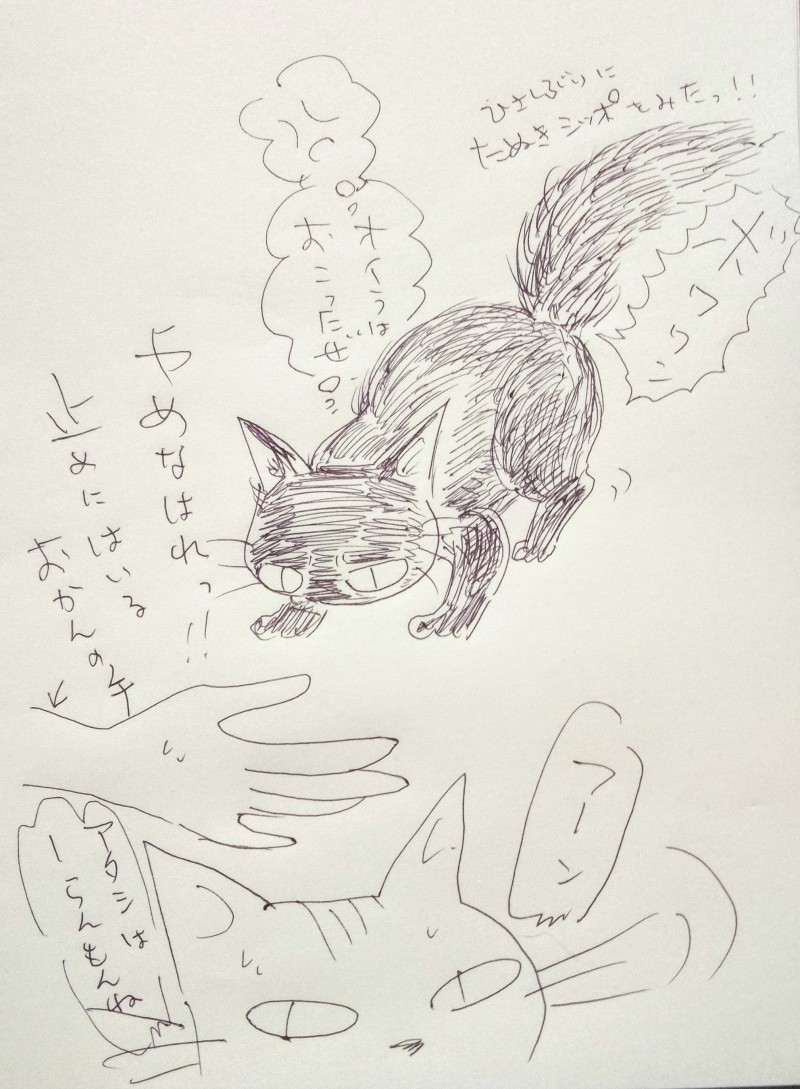 ひさしぶりに
たぬきシッポをみたっ!!
オイラは
おこったぜっ
やめなはれっ!!
止めにはいる
おかんの手
フーン
アタシは
しーらんもんね